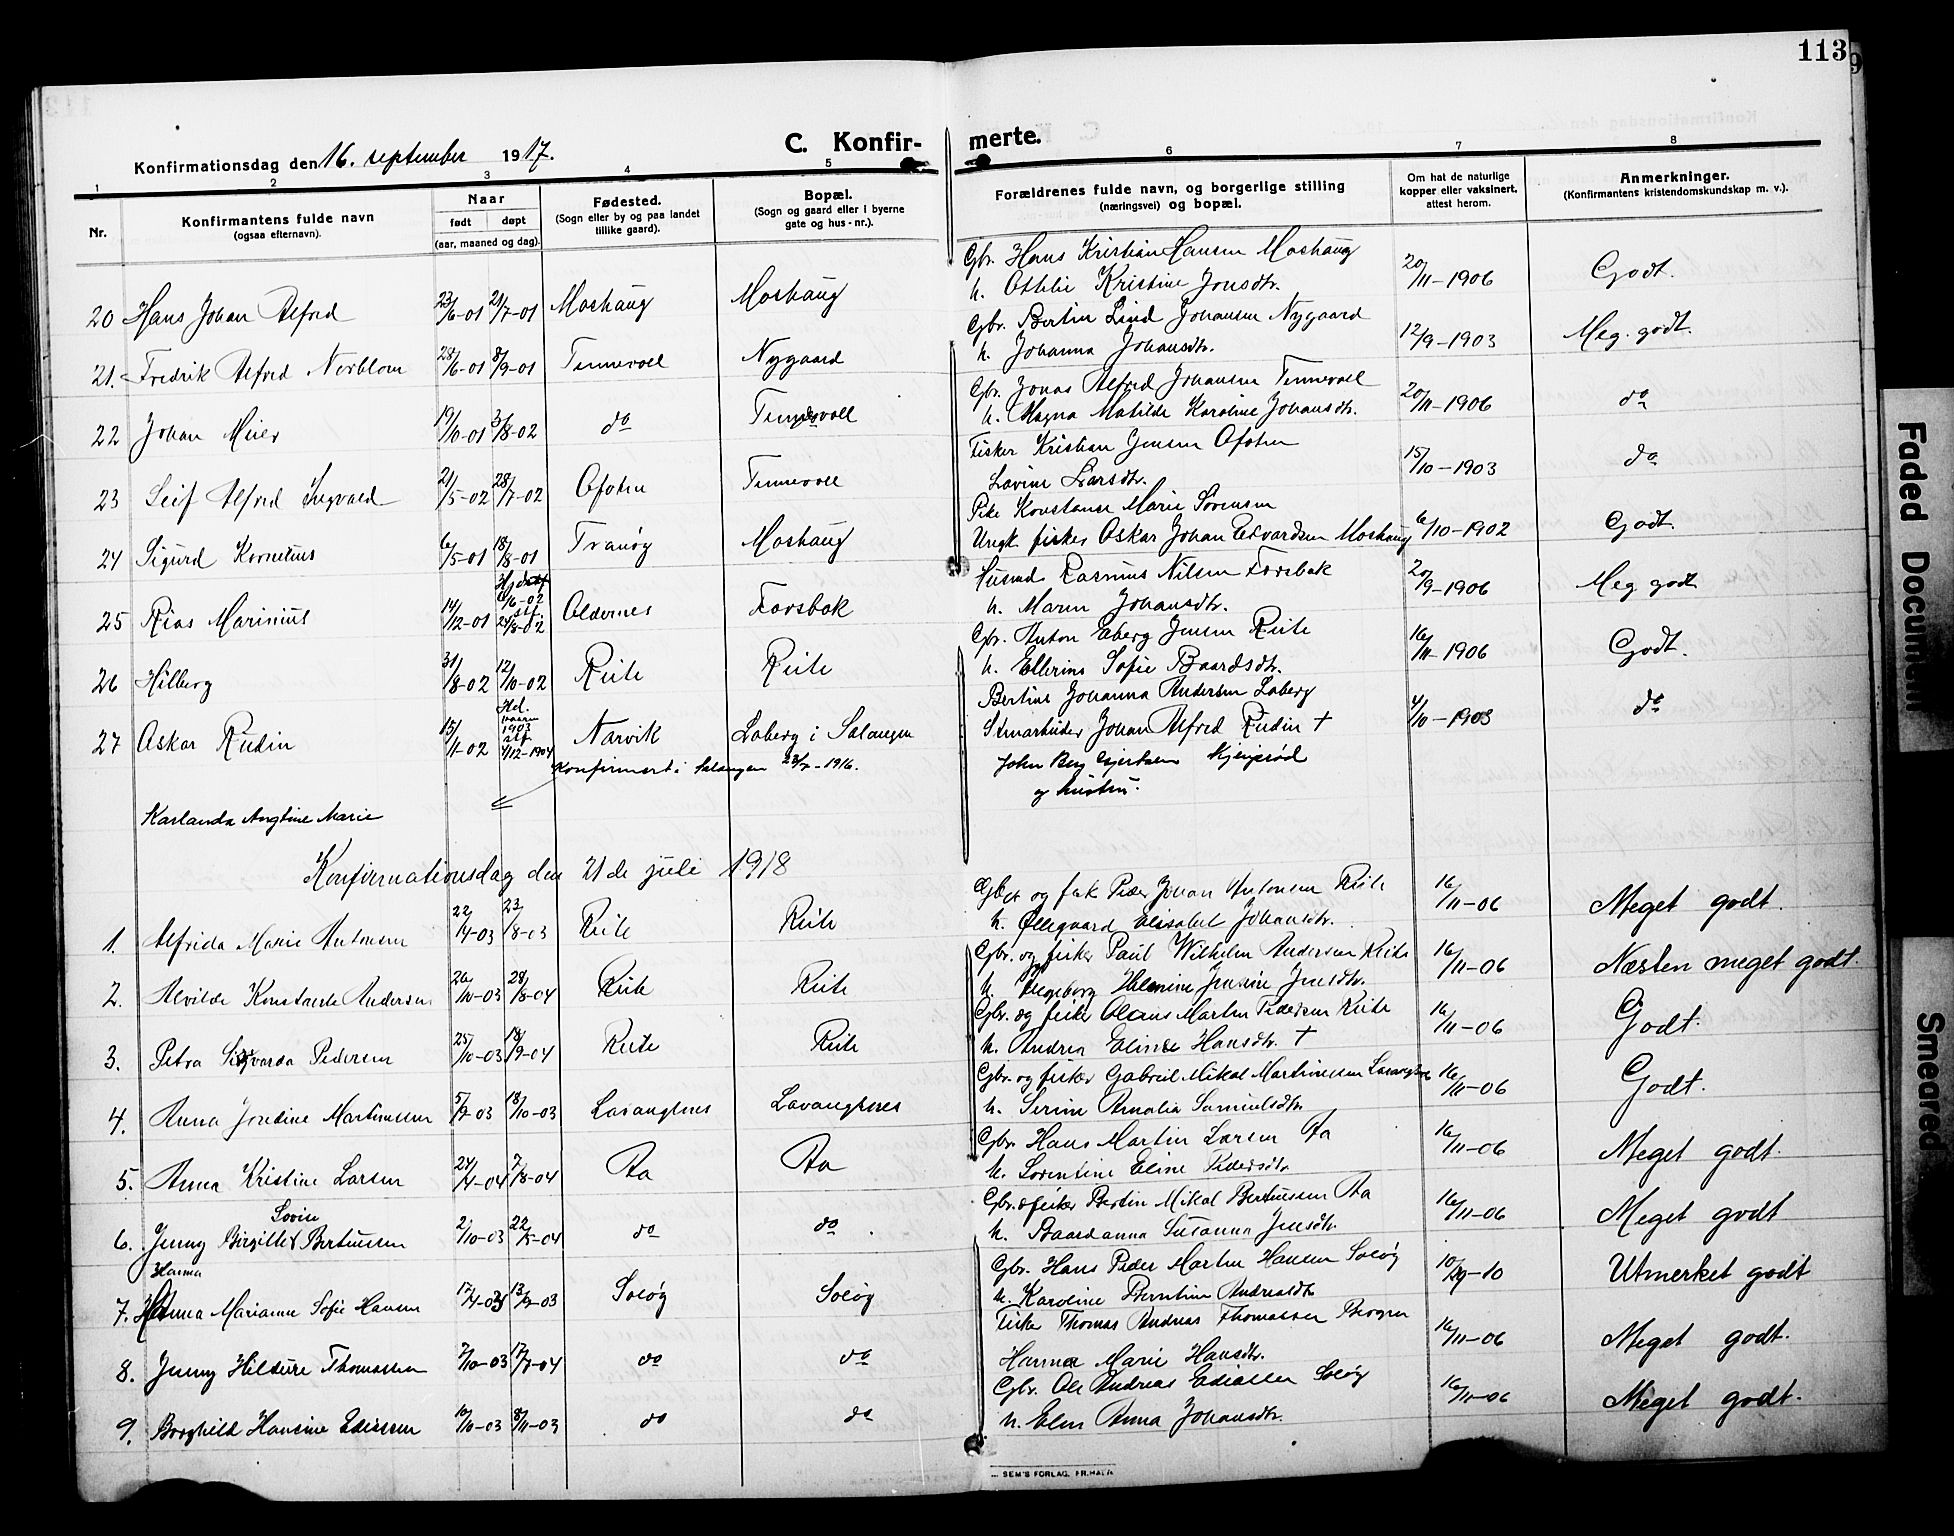 113
C. Konfirmerte.
Konfirmationsdag den 16. september 1917.
1 2 3 4 5 6 7 8
Nr. Konfirmantens fulde navn (ogsaa efternavn). Naar født døpt (aar, maaned og dag). Fødested. (Sogn eller by og paa landet tillike gaard). Bopæl. (Sogn og gaard eller i byerne gate og hus-nr.). Forældrenes fulde navn, og borgerlige stilling (næringsvei) og bopæl. Om hat de naturlige kopper eller vaksinert, attest herom. Anmerkninger. (Konfirmantens kristendomskundskap m. v.).
Gbr. Hans Kristian Hansen Moshaug
20 Hans Johan Alfred 23/6-01 21/7-01 Moshaug Moshaug h. Othlie Kristine Jonsdtr. 20/11-1906 Godt.
Gbr. Bertin Lind Johansen Nygaard
21. Fredrik Alfred Norblom 28/6-01 8/9-01 Tennevoll Nygaard h. Johanna Johansdtr. 12/9-1903 Meg. godt.
Gbr. Jonas Alfred Johansen Tennevoll
22 Johan Meier 19/10-01 3/8-02 do Tennevoll h. Magna Matilde Karoline Johansdtr. 20/11-1906 do
Fisker Kristian Jensen Ofoten
23 Leif Alfred Ingvald 21/5-02 28/7-02 Ofoten Tennevoll Lovine Larsdtr. 15/10-1903 do
Pike Konstanse Marie Sørensen
24 Sigurd Kornelius 6/5-01 18/8-01 Tranøy Moshaug Ungk. fisker Oskar Johan Edvardsen Moshaug 6/10-1902 Godt.
Husmd. Rasmus Nilsen Forsbak
25 Rias Marinius 14/12-01 6/6-02 stf. 24/8-02 Oldernes Forsbak h. Maren Johansdtr. 20/9-1906 Meg godt
Gbr. Anton Eberg Jensen Rüte
26 Hilberg 31/8-02 12/10-02 Rüte Rüte h. Ellerine Sofie Baardsdtr. 16/11-1906 Godt.
Bertine Johanna Andersen Laberg
27 Oskar Rudin 15/11-02 Hd. 1903 stf. 4/12-1904 Narvik Laberg i Salangen Stenarbeider Johan Alfred Rudin † 4/10-1903 do
Konfirmert i Salangen 23/7-1916.
Karlanda Angtine Marie
John Berg Gjertsen
og hustru.
Konfirmationsdag den 21de juli 1918
Gbr og fisk Peder Johan Antonsen Rüte
1. Alfrida Marie Antonsen 22/4-03 23/8-03 Rüte Rüte h. Øllegaard Elisabet Johansdtr. 16/11-06 Meget godt.
Gbr. og fisker Paul Wilhelm Andersen Rüte
2. Alvilde Konstanse Andersen 26/10-03 28/8-04 Rüte Rüte h. Ingeborg Helmine Jensine Jensdtr. 16/11-06 Næsten meget godt.
Gbr. og fisker Olaus Martin Pedersen Rüte
3. Petra Sigvarda Pedersen 25/10-03 18/9-04 Rüte Rüte h. Andrea Eline Hansdtr. † 16/11-06 Godt.
Gbr. og fisker Gabriel Mikal Martinussen Lavangsnes
4. Anna Jordine Martinussen 5/7-03 18/10-03 Lavangsnes Lavangsnes h. Serine Amalia Samuelsdtr. 16/11-06 Godt.
Gbr. Hans Martin Larsen Aa
5. Anna Kristine Larsen 24/4-04 7/8-04 Aa Aa h. Sorentine Eline Pedersdtr. 16/11-06 Meget godt.
Gbr. & fisker Bertin Mikal Berteussen Aa
Lovise
6. Jenny Birgitte Berteussen 2/10-03 22/5-04 do do h. Baardanna Susanna Jensdtr. 16/11-06 Meget godt
Gbr. Hans Peder Martin Hansen Soløy
Hanna
7. Marianne Sofie Hansen 17/4-03 13/7-03 Soløy Soløy h. Karoline Berntine Andreasdtr. 10/9-10 Utmerket godt
Fisker Thomas Andreas Thomassen
8. Jenny Hildure Thomassen 7/10-03 17/7-04 do do Hanna Marie Hansdtr. 16/11-06 Meget godt.
Gbr. Ole Andreas Ediassen Soløy
9. Borghild Hansine Ediassen 10/10-03 8/11-03 do do h. Elen Anna Johansdtr. 16/11-06 Meget godt.
SEM'S FORLAG, FR.HALD
Faded Document
Smeared